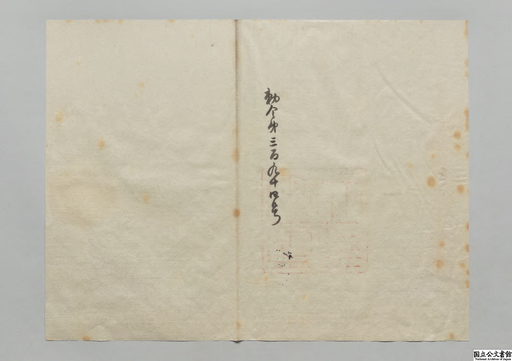 勅令第三百九十四号
国立公文書館
National Archives of Japan